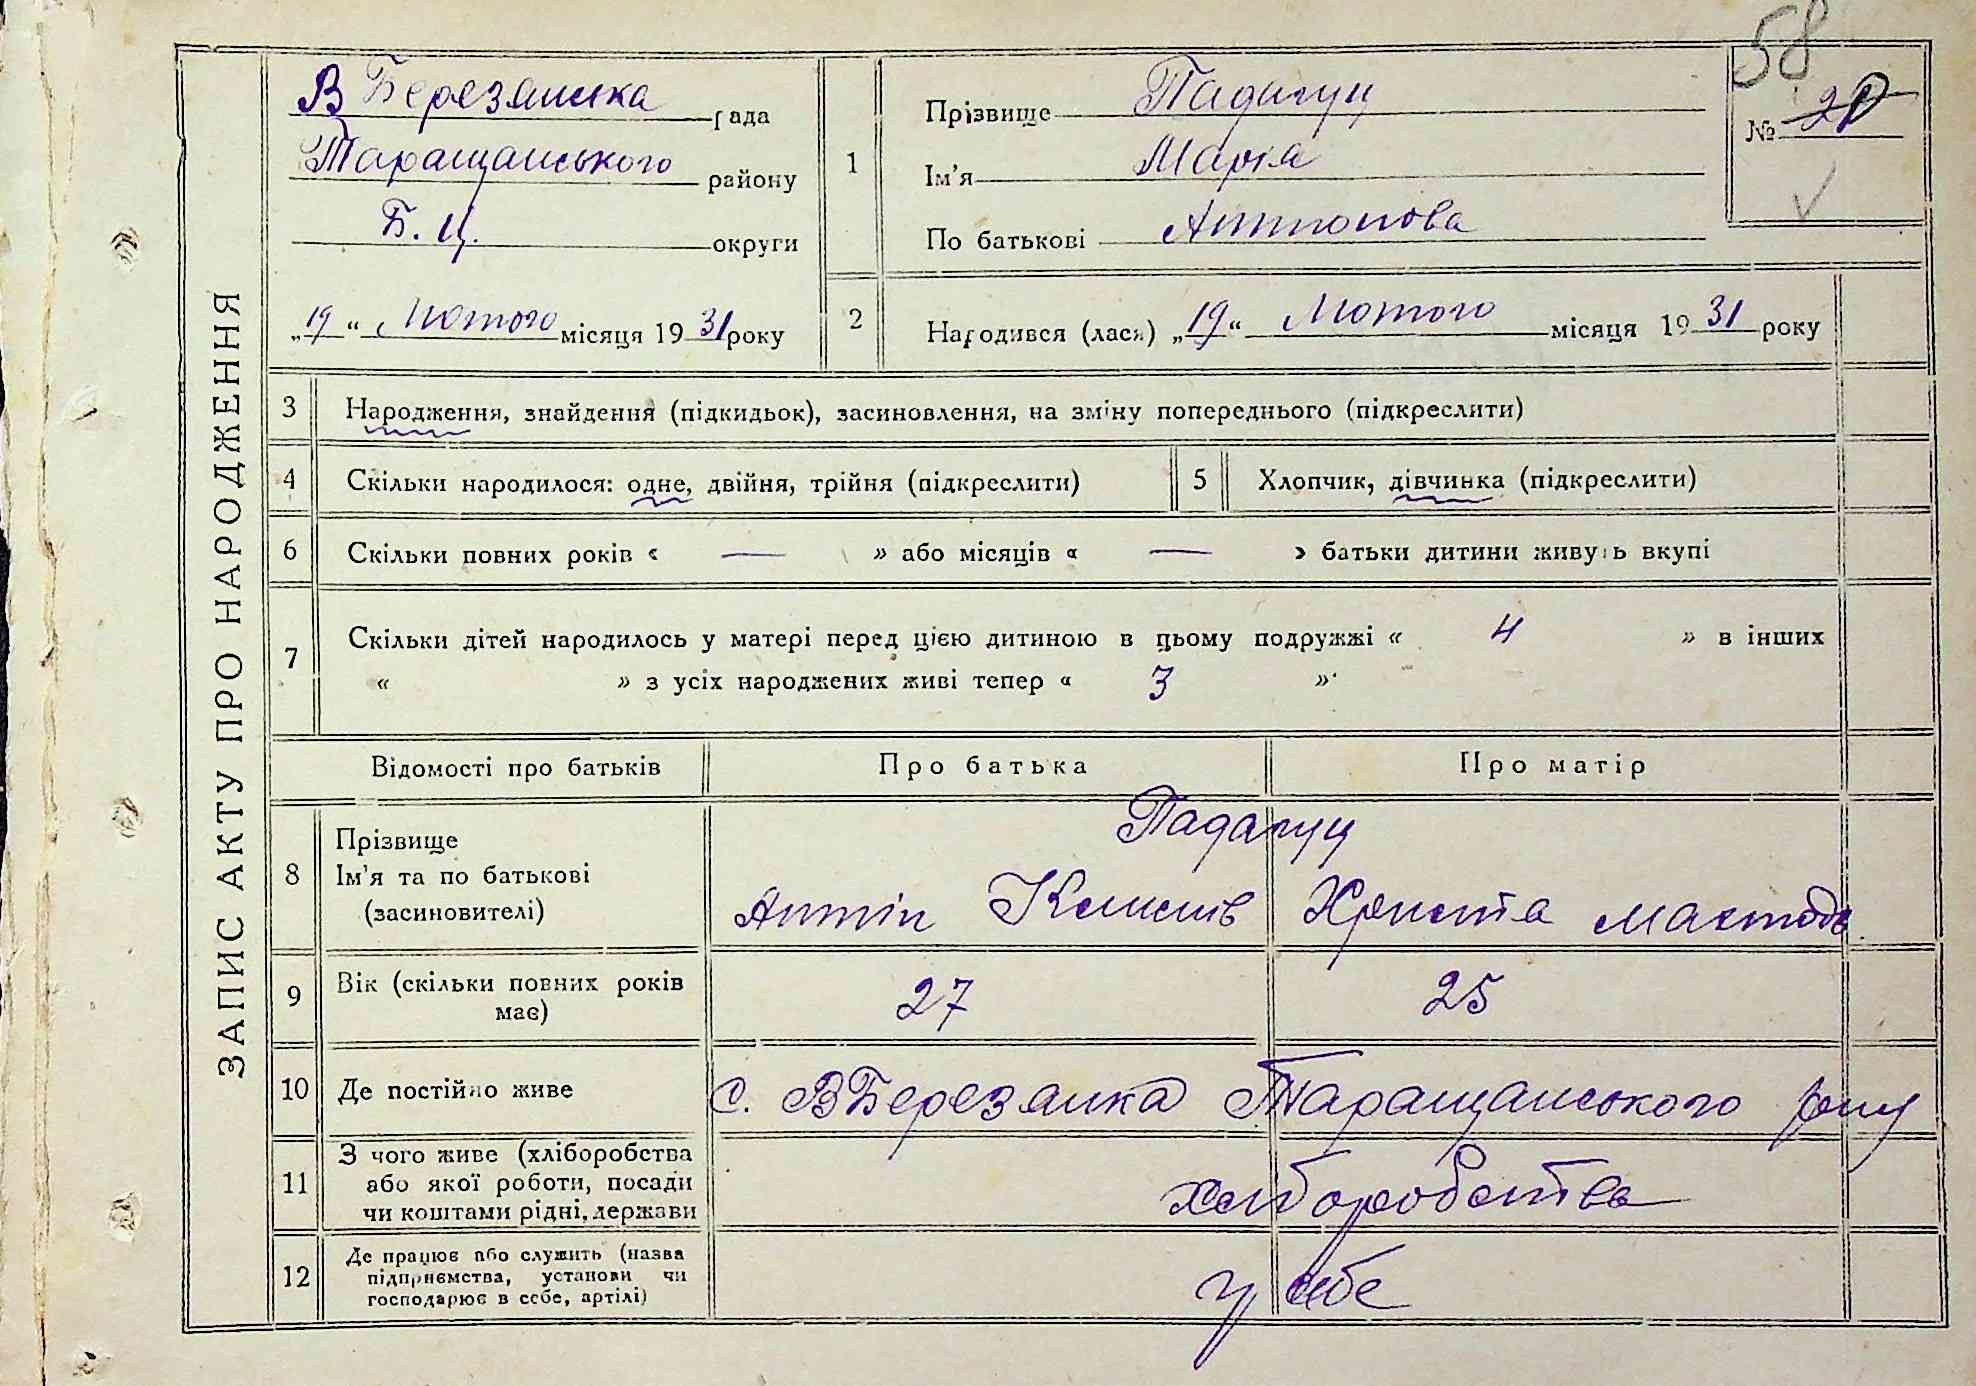 58
ЗАПИС АКТУ ПРО НАРОДЖЕННЯ
В Березянська рада
Таращанського району
Б. Ц. округи
„19“ Лютого місяця 1931 року
1
Прізвище Падагуц
Ім'я Марія
По батькові Антіпова
№ 20
2
Народився (лася) „19“ Лютого місяця 1931 року
3 Народження, знайдення (підкидьок), засиновлення, на зміну попереднього (підкреслити)
4 Скільки народилося: одне, двійня, трійня (підкреслити)
5 Хлопчик, дівчинка (підкреслити)
6 Скільки повних років « — » або місяців « — » батьки дитини живуть вкупі
7 Скільки дітей народилось у матері перед цією дитиною в цьому подружжі « 4 » в інших
« » з усіх народжених живі тепер « 3 »
Відомості про батьків Про батька Про матір
8 Прізвище
Ім'я та по батькові
(засиновителі)
Падагуц
Антіп Климів Христя
9 Вік (скільки повних років
має)
27 25
10 Де постійно живе с. ВБерезянка Таращанського р-ну
11 З чого живе (хліборобства
або якої роботи, посади
чи коштами рідні, держави
хліборобства
12 Де працює або служить (назва
підприємства, установи чи
господарює в себе, артілі)
у себе